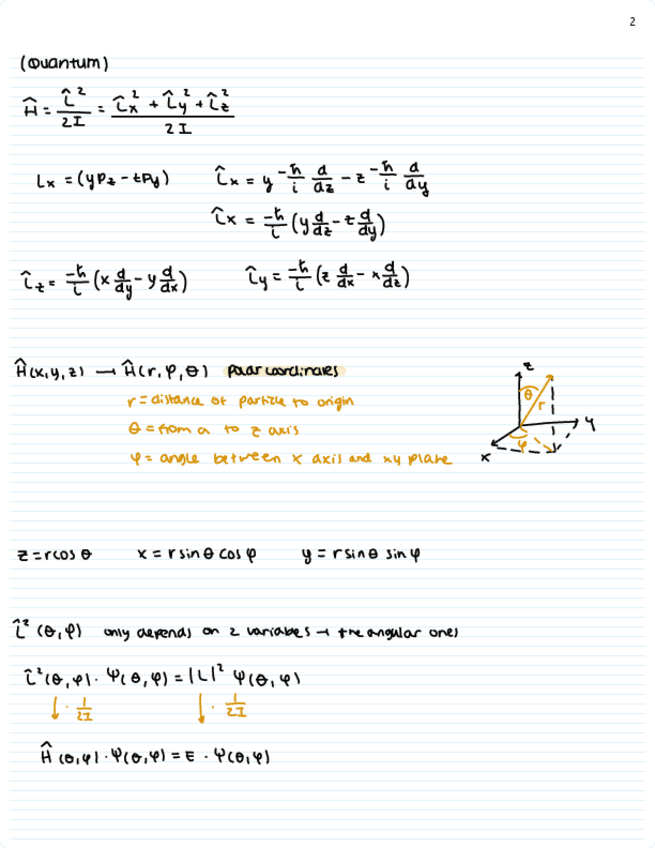 2
(Quantum)
Ĥ = L̂² / 2I = (L̂x² + L̂y² + L̂z²) / 2I
Lx = (yPz - zPy)    L̂x = y -ħ/i d/dz - z -ħ/i d/dy
L̂x = -ħ/i (y d/dz - z d/dy)
L̂z = -ħ/i (x d/dy - y d/dx)    L̂y = -ħ/i (z d/dx - x d/dz)
Ĥ(x,y,z) → Ĥ(r, φ, θ) polar coordinates
r = distance of particle to origin
θ = from a to z axis
φ = angle between x axis and xy plane
z
θ
r
y
φ
x
z = rcos θ    x = r sin θ cos φ    y = r sin θ sin φ
L̂² (θ, φ) only depends on 2 variables → the angular ones
L̂²(θ, φ) · Ψ(θ, φ) = |L|² Ψ(θ, φ)
↓ · 1/2I    ↓ · 1/2I
Ĥ (θ,φ) · Ψ(θ, φ) = E · Ψ(θ,φ)